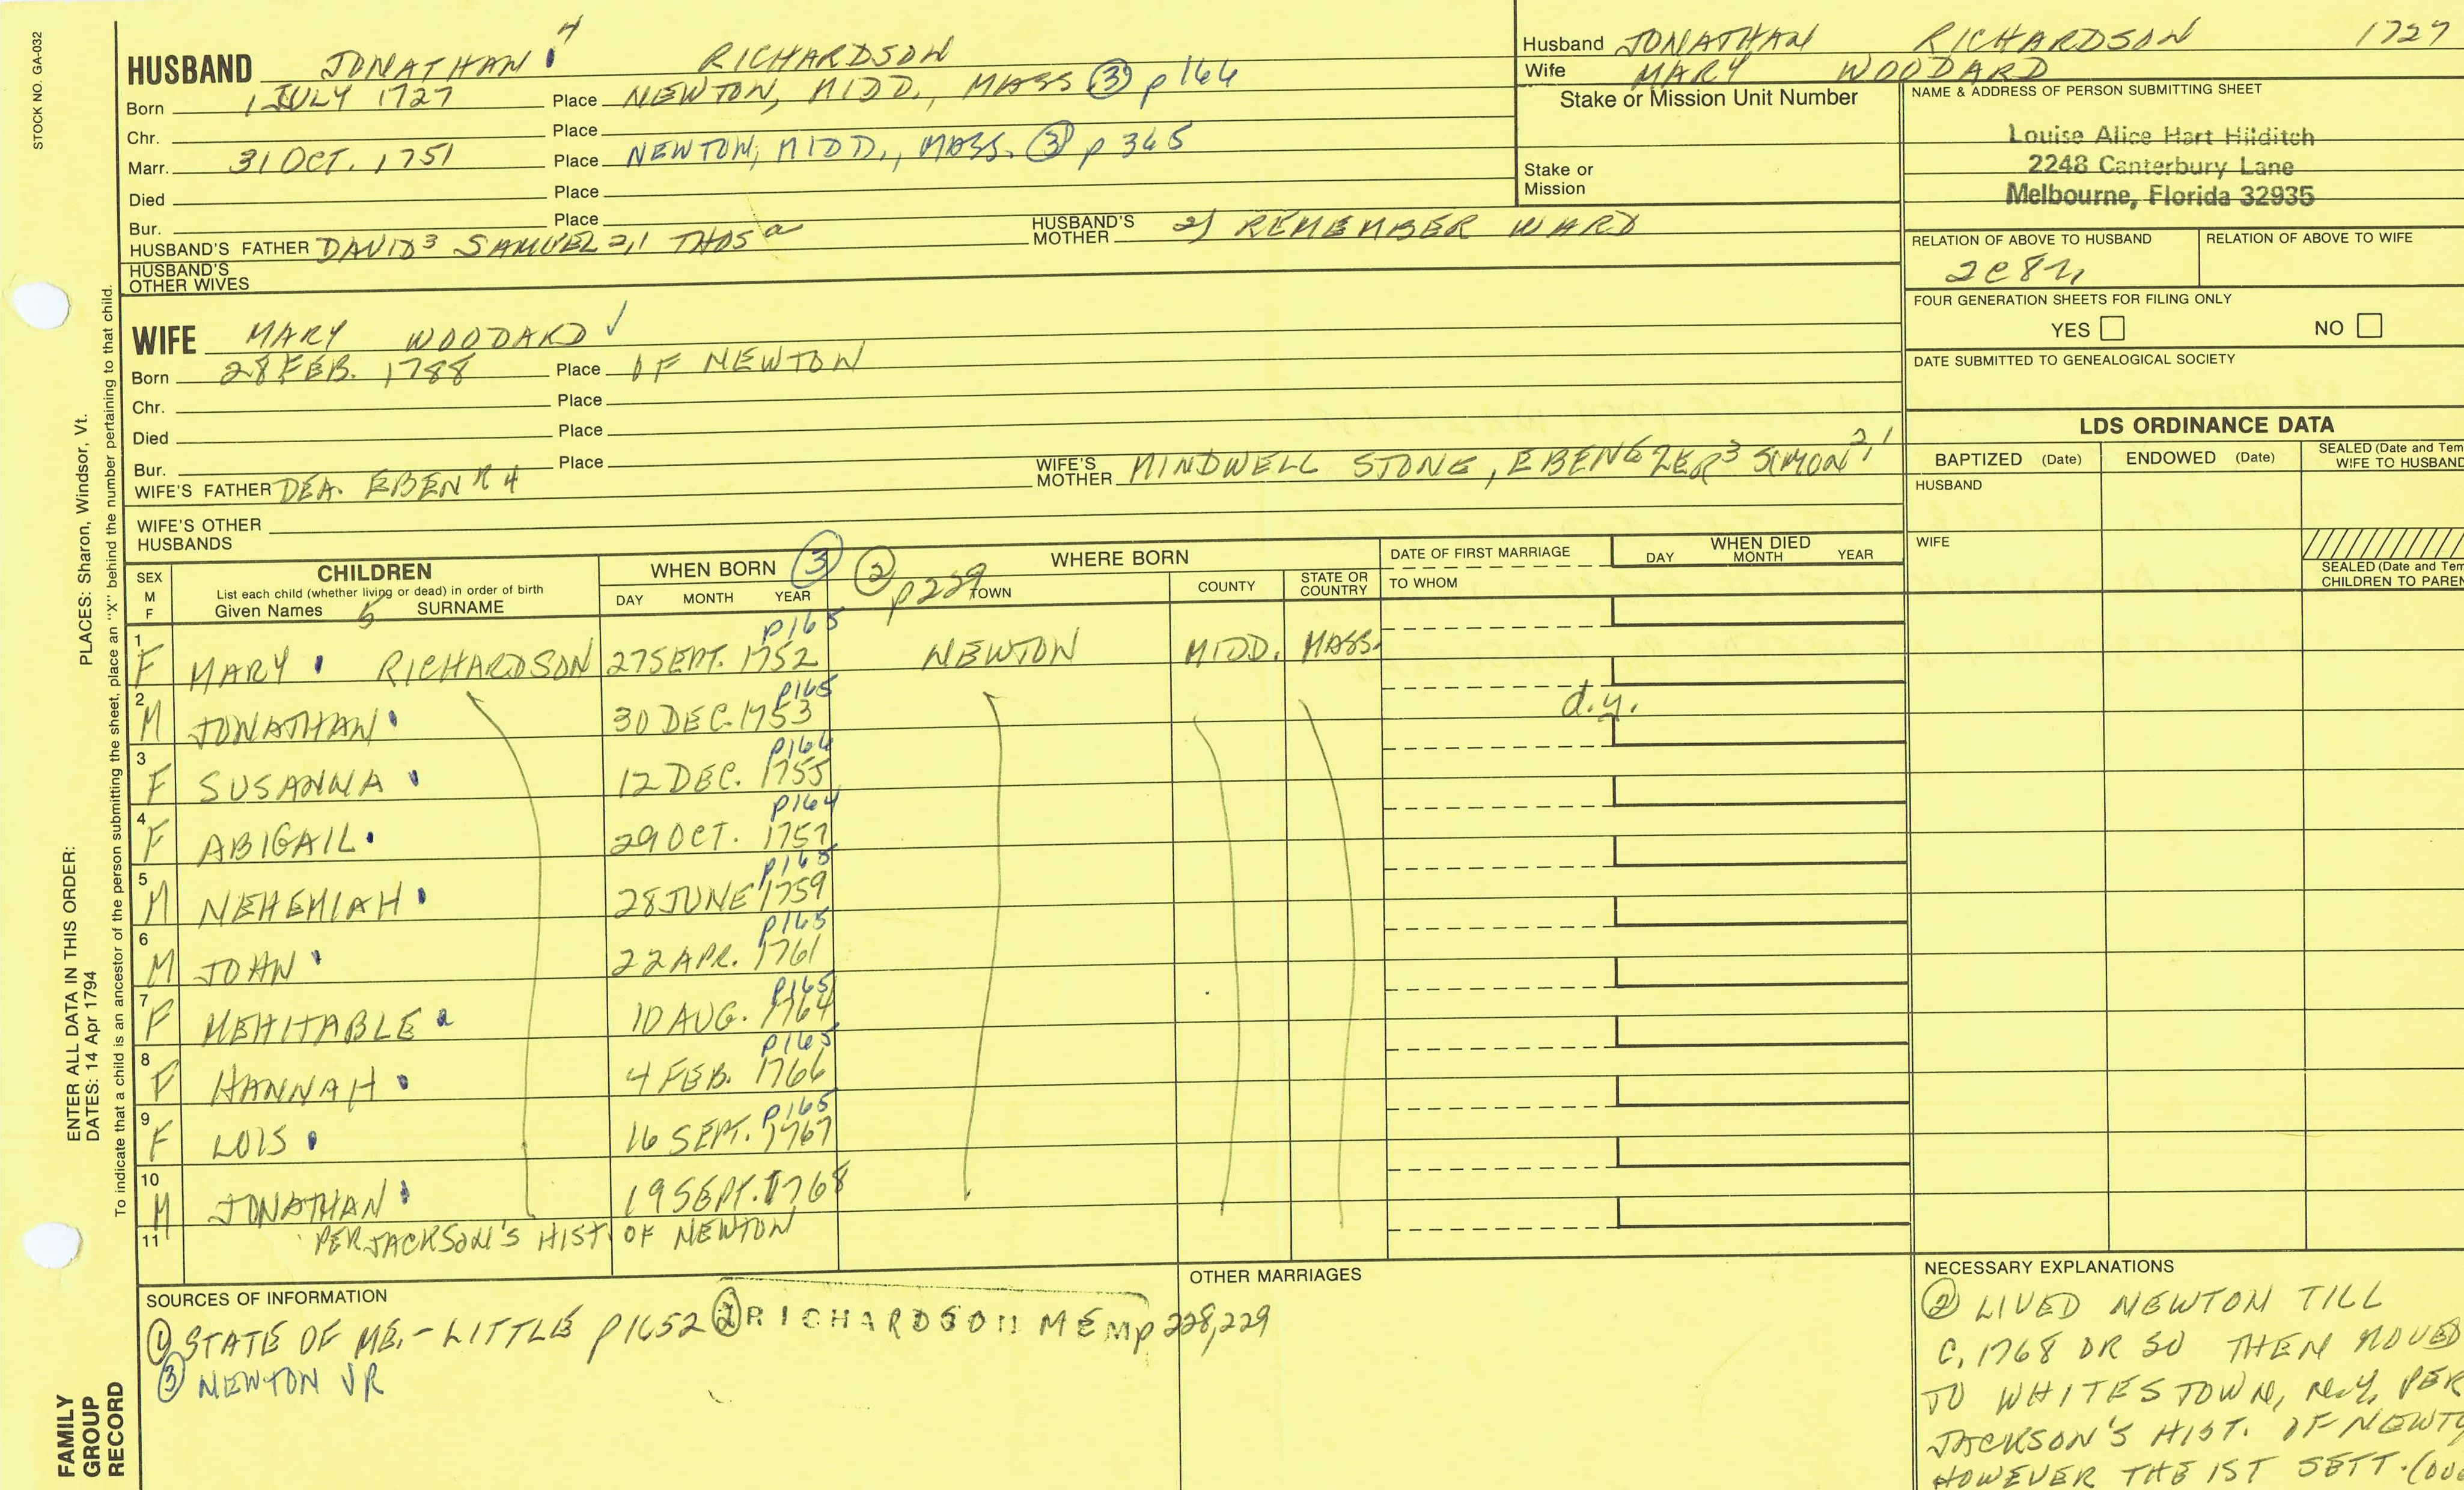 STOCK NO. GA-032
HUSBAND JONATHAN 4 RICHARDSON
Born 1 JULY 1727 Place NEWTON, MIDD., MASS (3) p 166
Chr. Place
Marr. 31 OCT. 1751 Place NEWTON, MIDD., MASS. (3) p 365
Died Place
Bur. Place
HUSBAND'S FATHER DAVID3 SAMUEL2,1 THOSa HUSBAND'S MOTHER 2) REMEMBER WARD
HUSBAND'S OTHER WIVES
WIFE MARY WOODARD ✓
Born 28 FEB. 1788 Place OF NEWTON
Chr. Place
Died Place
Bur. Place
WIFE'S FATHER DEA. EBEN R 4 WIFE'S MOTHER MINDWELL STONE, EBENEZER3 SIMON2,1
WIFE'S OTHER HUSBANDS
Husband JONATHAN RICHARDSON 1727
Wife MARY WOODARD
Stake or Mission Unit Number
Stake or Mission
NAME & ADDRESS OF PERSON SUBMITTING SHEET
Louise Alice Hart Hilditch
2248 Canterbury Lane
Melbourne, Florida 32935
RELATION OF ABOVE TO HUSBAND RELATION OF ABOVE TO WIFE
FOUR GENERATION SHEETS FOR FILING ONLY
YES NO
DATE SUBMITTED TO GENEALOGICAL SOCIETY
LDS ORDINANCE DATA
BAPTIZED (Date) ENDOWED (Date) SEALED (Date and Tem
WIFE TO HUSBAND
HUSBAND
WIFE
SEALED (Date and Tem
CHILDREN TO PAREN
SEX M F
CHILDREN
List each child (whether living or dead) in order of birth
Given Names 5 SURNAME
WHEN BORN (3)
DAY MONTH YEAR
(2) p229
WHERE BORN
TOWN COUNTY STATE OR COUNTRY
DATE OF FIRST MARRIAGE
TO WHOM
WHEN DIED
DAY MONTH YEAR
p165
1 F MARY RICHARDSON 27 SEPT. 1752 NEWTON MIDD. MASS.
p165
2 M JONATHAN 30 DEC. 1753 d.y.
p166
3 F SUSANNA 12 DEC. 1755
p164
4 F ABIGAIL 29 OCT. 1757
p165
5 M NEHEMIAH 28 JUNE 1759
p165
6 M JOHN 22 APR. 1761
p165
7 F MEHITABLE 10 AUG. 1764
p165
8 F HANNAH 4 FEB. 1766
p165
9 F LOIS 16 SEPT. 1767
10 M JONATHAN 19 SEPT. 1768
11 PER JACKSON'S HIST. OF NEWTON
SOURCES OF INFORMATION
(1) STATE OF ME. - LITTLE p1652 (2) RICHARDSON MEM p 228,229
(3) NEWTON VR
OTHER MARRIAGES
NECESSARY EXPLANATIONS
(2) LIVED NEWTON TILL
C. 1768 OR SO THEN MOVED
TO WHITESTOWN, N.Y. PER
JACKSON'S HIST. OF NEWTO
HOWEVER THE 1ST SETT.
PLACES: Sharon, Windsor, Vt.
ENTER ALL DATA IN THIS ORDER:
DATES: 14 Apr 1794
To indicate that a child is an ancestor of the person submitting the sheet, place an "X" behind the number pertaining to that child.
FAMILY
GROUP
RECORD